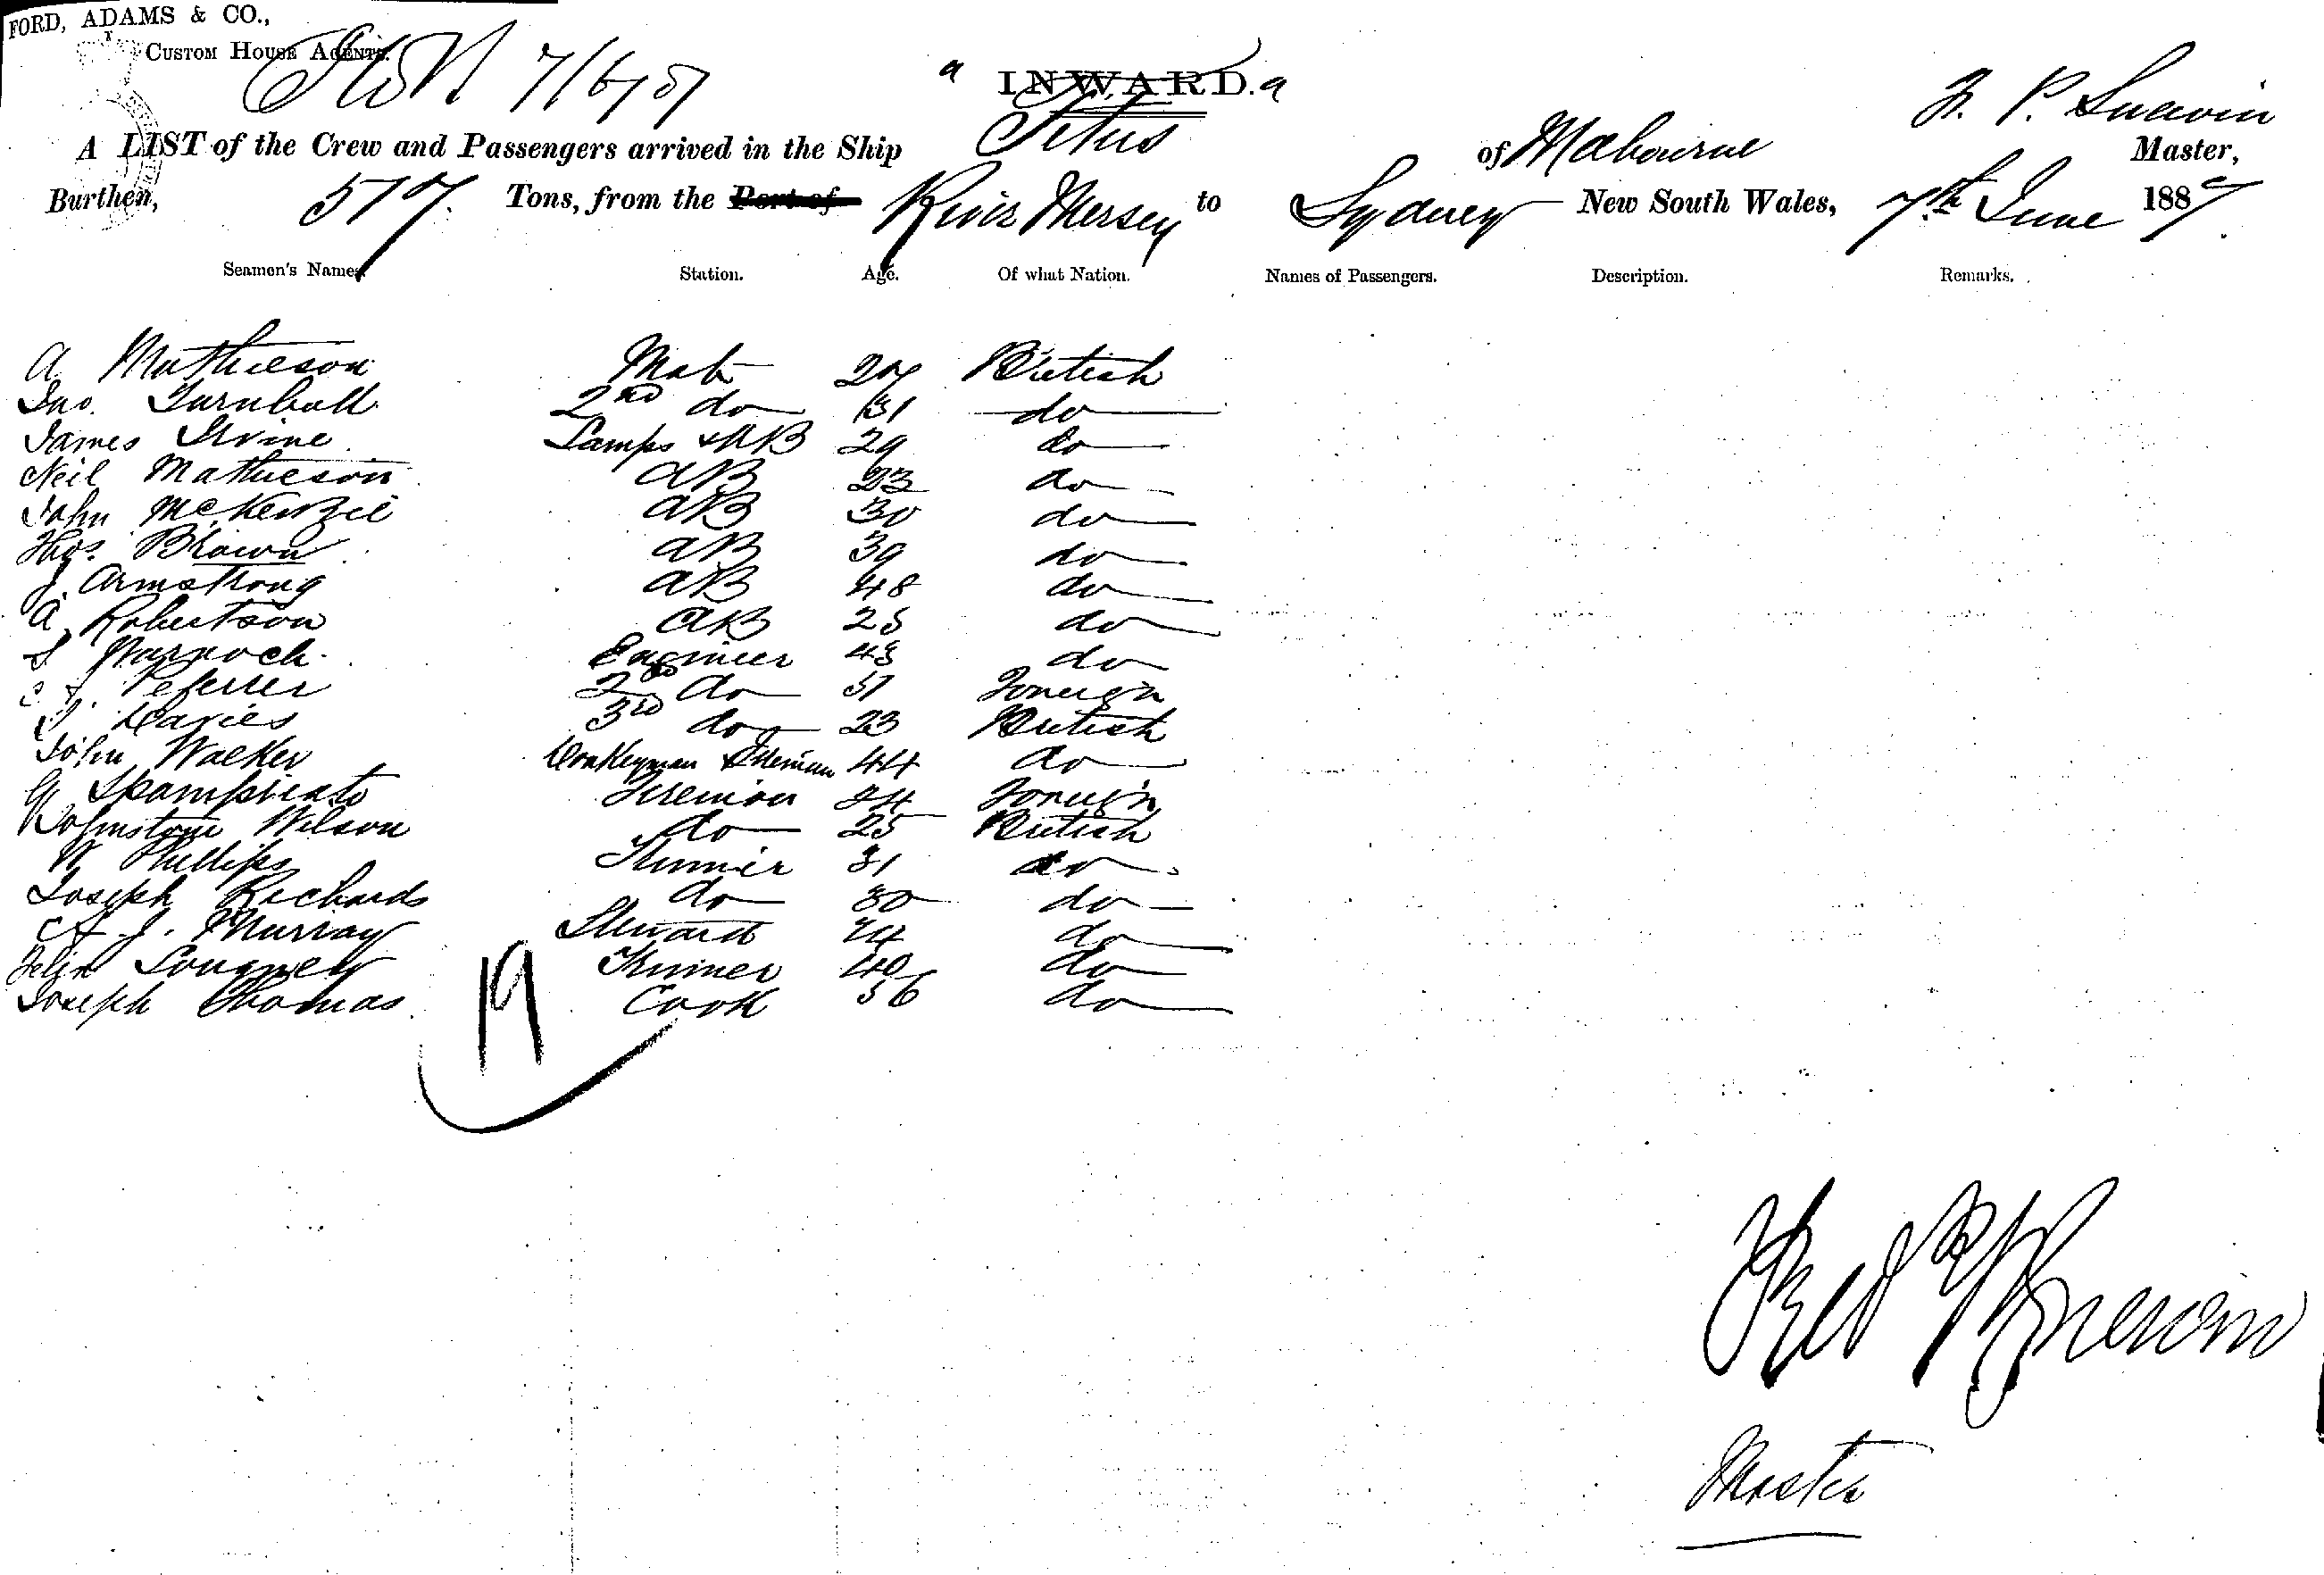 FORD, ADAMS & CO.,
CUSTOM HOUSE AGENTS.
7/6/87
INWARD.
F. P. Snewin
A LIST of the Crew and Passengers arrived in the Ship Titus of Melbourne Master,
Burthen, 517 Tons, from the Port of River Mersey to Sydney New South Wales, 7th June 1887
Seamen's Names Station. Age. Of what Nation. Names of Passengers. Description. Remarks.
A Mathieson Mate 27 British
Jno. Turnbull 2nd do 31 do
James Irvine Lamps & AB 29 do
Neil Mathieson AB 23 do
John McKenzie AB 30 do
Thos. Brown AB 39 do
J. Armstrong AB 48 do
A. Robertson AB 25 do
Warnock Engineer 43 do
2nd do Foreign
Davies 3rd do 23 British
John Walker Donkeyman & Fireman 44 do
G. Spampinato Fireman 24 Foreign
Johnstone Wilson do 25 British
W Phillips Trimmer 31 do
Joseph Richards do 30 do
A. J. Murray Steward 44 do
Felix Trimmer 40 do
Joseph Thomas Cook 56 do
19
Fred P Snewin
Master